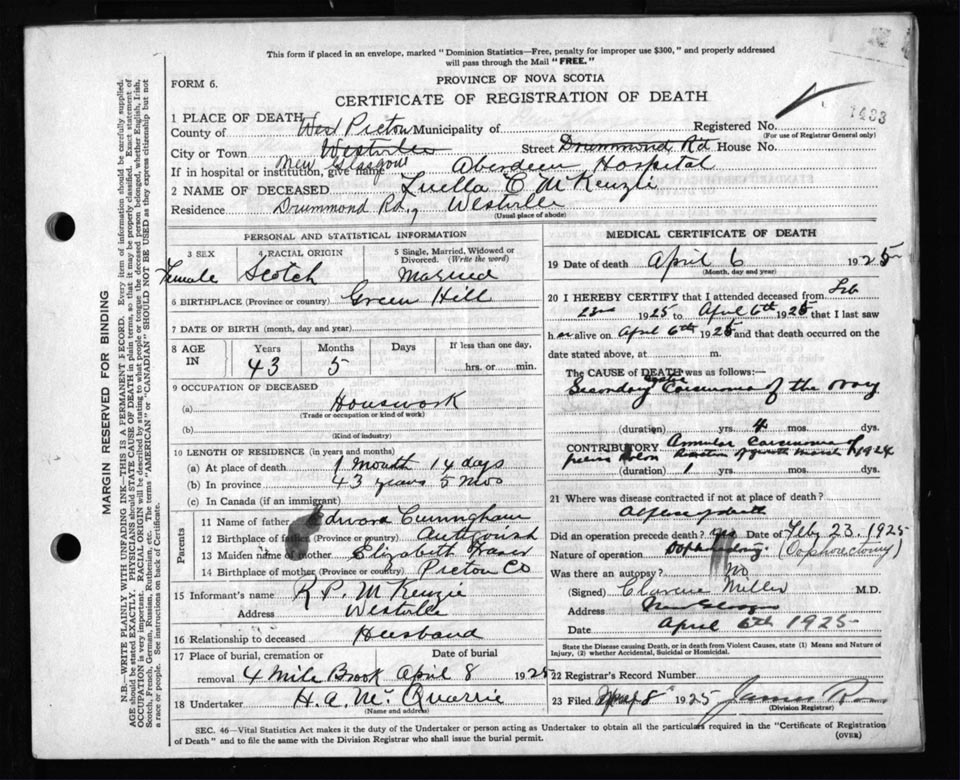 This form if placed in an envelope, marked "Dominion Statistics—Free, penalty for improper use $300," and properly addressed
will pass through the Mail "FREE."
FORM 6.
PROVINCE OF NOVA SCOTIA
CERTIFICATE OF REGISTRATION OF DEATH
1433
1 PLACE OF DEATH
County of West Pictou Municipality of
Registered No.
(For use of Registrar General only)
City or Town Westville Street Drummond Rd House No.
New Glasgow
If in hospital or institution, give name Aberdeen Hospital
2 NAME OF DECEASED Luella C McKenzie
Residence Drummond Rd., Westville
(Usual place of abode)
PERSONAL AND STATISTICAL INFORMATION
3 SEX Female
4 RACIAL ORIGIN Scotch
5 Single, Married, Widowed or Divorced. (Write the word) Married
6 BIRTHPLACE (Province or country) Green Hill
7 DATE OF BIRTH (month, day and year)
8 AGE IN Years 43 Months 5 Days If less than one day, hrs. or min.
9 OCCUPATION OF DECEASED
(a) Housework
(Trade or occupation or kind of work)
(b)
(Kind of industry)
10 LENGTH OF RESIDENCE (in years and months)
(a) At place of death 1 month 14 days
(b) In province 43 years 5 Mos
(c) In Canada (if an immigrant)
Parents
11 Name of father Edward Cunningham
12 Birthplace of father (Province or country) Antigonish
13 Maiden name of mother Elizabeth Fraser
14 Birthplace of mother (Province or country) Pictou Co
15 Informant's name R P. McKenzie
Address Westville
16 Relationship to deceased Husband
17 Place of burial, cremation or removal 4 Mile Brook
Date of burial April 8 1925
18 Undertaker H. A. McQuarrie
(Name and address)
MEDICAL CERTIFICATE OF DEATH
19 Date of death April 6 1925
(Month, day and year)
20 I HEREBY CERTIFY that I attended deceased from Feb
1925 to April 6th 1925 that I last saw
h er alive on April 6th 1925 and that death occurred on
date stated above, at m.
The CAUSE of DEATH was as follows:—
Secondary Carcinoma of the Ovary
(duration) yrs. 4 mos. dys.
CONTRIBUTORY Annular Carcinoma of
March 1924
(duration) 1 yrs. mos. dys.
21 Where was disease contracted if not at place of death?
Did an operation precede death? yes Date of Feb 23. 1925
Nature of operation (Oophorectomy)
Was there an autopsy? No
(Signed) Clarence Miller M.D.
Address New Glasgow
Date April 6th 1925
State the Disease causing Death, or in death from Violent Causes, state (1) Means and Nature of
Injury, (2) whether Accidental, Suicidal or Homicidal.
22 Registrar's Record Number
23 Filed 8 1925 James
(Division Registrar)
SEC. 46—Vital Statistics Act makes it the duty of the Undertaker or person acting as Undertaker to obtain all the particulars required in the "Certificate of Registration
of Death" and to file the same with the Division Registrar who shall issue the burial permit.
(OVER)
MARGIN RESERVED FOR BINDING
N.B.—WRITE PLAINLY WITH UNFADING INK—THIS IS A PERMANENT RECORD. Every item of information should be carefully supplied.
AGE should be stated EXACTLY. PHYSICIANS should STATE CAUSE OF DEATH in plain terms, so that it may be properly classified. Exact statement of
OCCUPATION is very important. RACIAL ORIGIN will be described by stating to what people or tongue the deceased person belonged, whether English, Irish,
Scotch, French, German, Russian, Ruthenian, etc. The terms "AMERICAN" or "CANADIAN" SHOULD NOT BE USED as they express citizenship but not
a race or people. See instructions on back of Certificate.